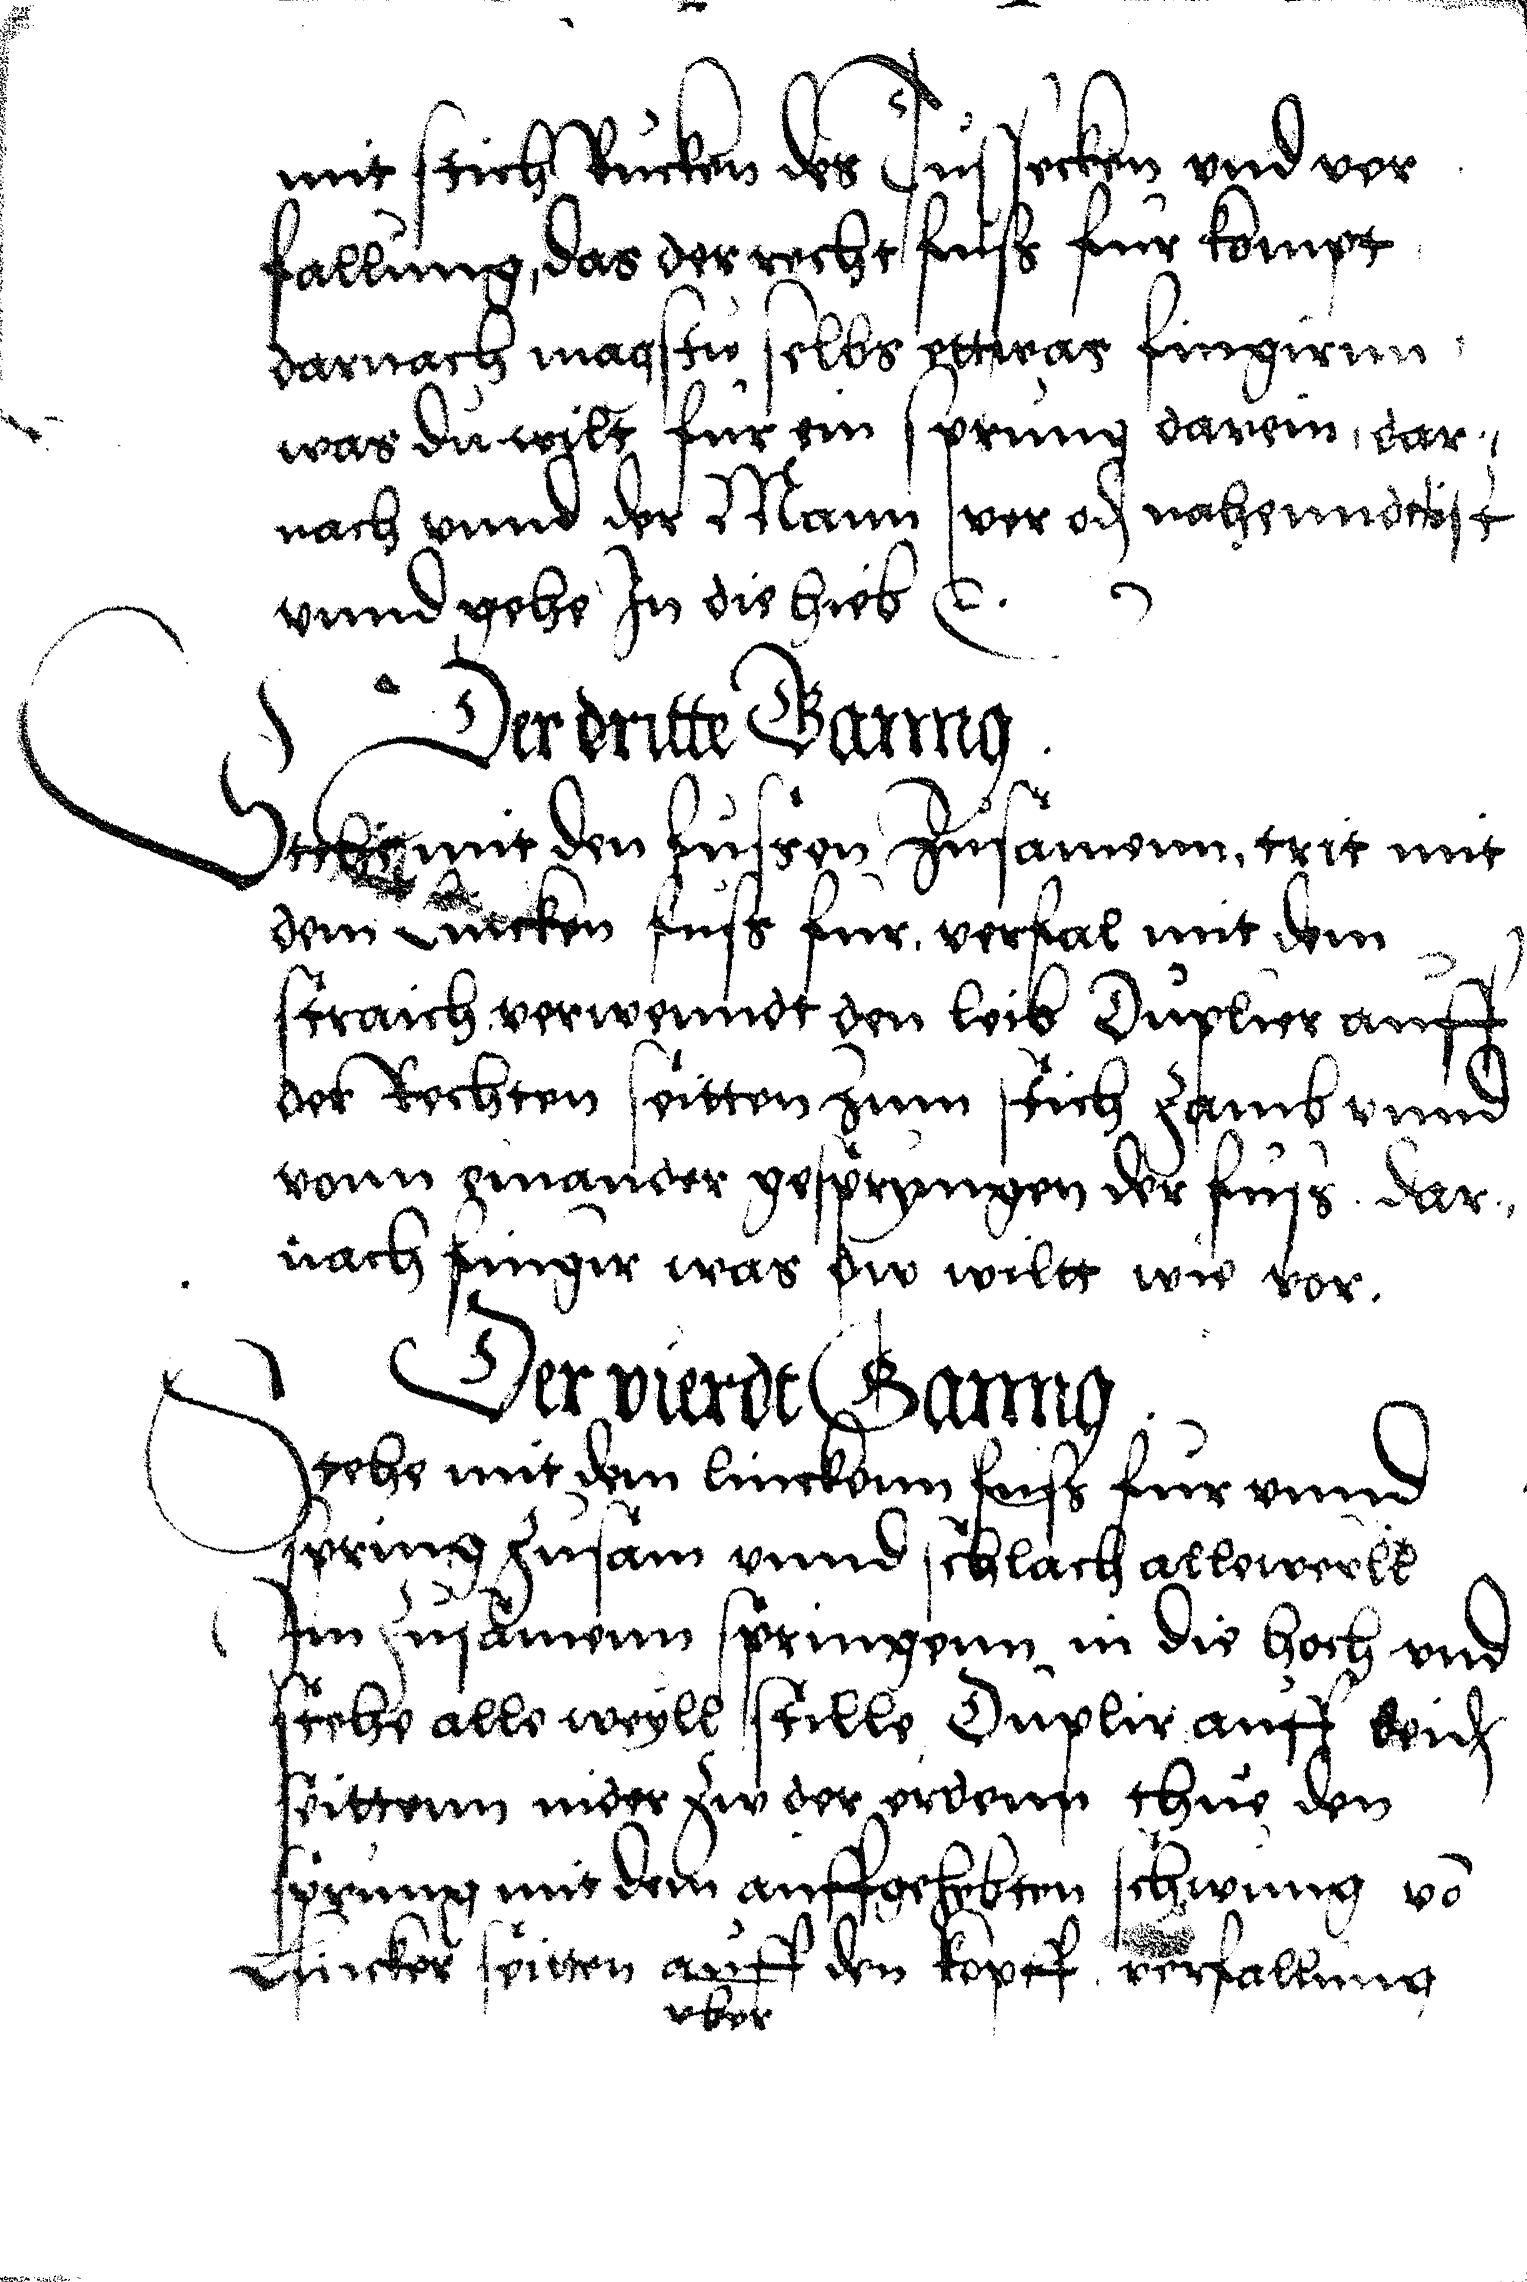 mit stich Rucken des Zustecken vnd ver
fallung, das der recht fuss fur kompt
darnach magstu selbs ettwas fingirnn
was du wilt fur ein sprung darein, dar-
nach vnnd der Mann vor od nahenndest
vnnd gehe In die hieb
Der dritte Ganng
Stehe mit den fussen Zusamenn, trit mit
dem Lincken fuss fur. verfal mit dem
straich verwenndt den leib Duplier auff
der Rechten seitten Zum stich Zamb vnnd
vonn einander gesprungen der fuss. dar-
nach fingir was dw wiltt wie vor.
Der vierdt Ganng
Stehe mit dem linckenn fuss fur vnnd
spring Zusam vnnd schlach alleweill
Im Zusamenn springenn in die hoch vnd
stehe alle weyll stille Duplir auff beid
seittenn nider Zw der erdenn thue den
sprung mit dem auffgehebten schwung vō
Lincker seitten auff den kopff verfallung
vber